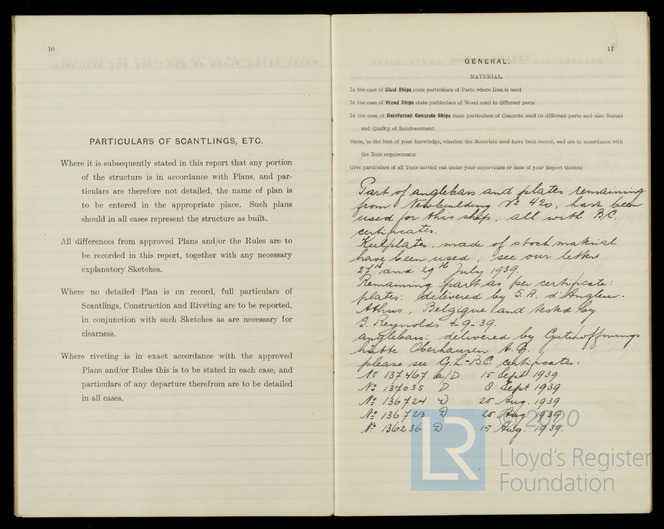 10
PARTICULARS OF SCANTLINGS, ETC.
Where it is subsequently stated in this report that any portion
of the structure is in accordance with Plans, and par-
ticulars are therefore not detailed, the name of plan is
to be entered in the appropriate place. Such plans
should in all cases represent the structure as built.
All differences from approved Plans and/or the Rules are to
be recorded in this report, together with any necessary
explanatory Sketches.
Where no detailed Plan is on record, full particulars of
Scantlings, Construction and Riveting are to be reported,
in conjunction with such Sketches as are necessary for
clearness.
Where riveting is in exact accordance with the approved
Plans and/or Rules this is to be stated in each case, and
particulars of any departure therefrom are to be detailed
in all cases.
11
GENERAL.
MATERIAL.
In the case of Steel Ships state particulars of Parts where Iron is used
In the case of Wood Ships state particulars of Wood used in different parts
In the case of Reinforced Concrete Ships state particulars of Concrete used in different parts and also Nature
and Quality of Reinforcement
State, to the best of your knowledge, whether the Materials used have been tested, and are in accordance with
the Rule requirements
Give particulars of all Tests carried out under your supervision or date of your Report thereon
Part of anglebars and plates remaining
from Newbuilding No 420, have been
used for this ship, all with B.C.
certificates.
Keelplates made of stock material
have been used, see our letters
27th and 29th July 1939.
Remaining part as per certificate:
plates: delivered by S.A. d'Angleur.
Athus, Belgique and tested by
G. Reynolds 4-9-39.
anglebars: delivered by Gutehoffnungs
hütte Oberhausen A.G.
please see G.L.-B.C. certificates.
No 137467 a/D 15 Sept 1939
No 137035 D 8 Sept 1939
No 136724 D 25 Aug. 1939
No 136723 D 25 Aug 1939
No 136236 D 15 Aug. 1939.
2020
LR
Lloyd's Register
Foundation